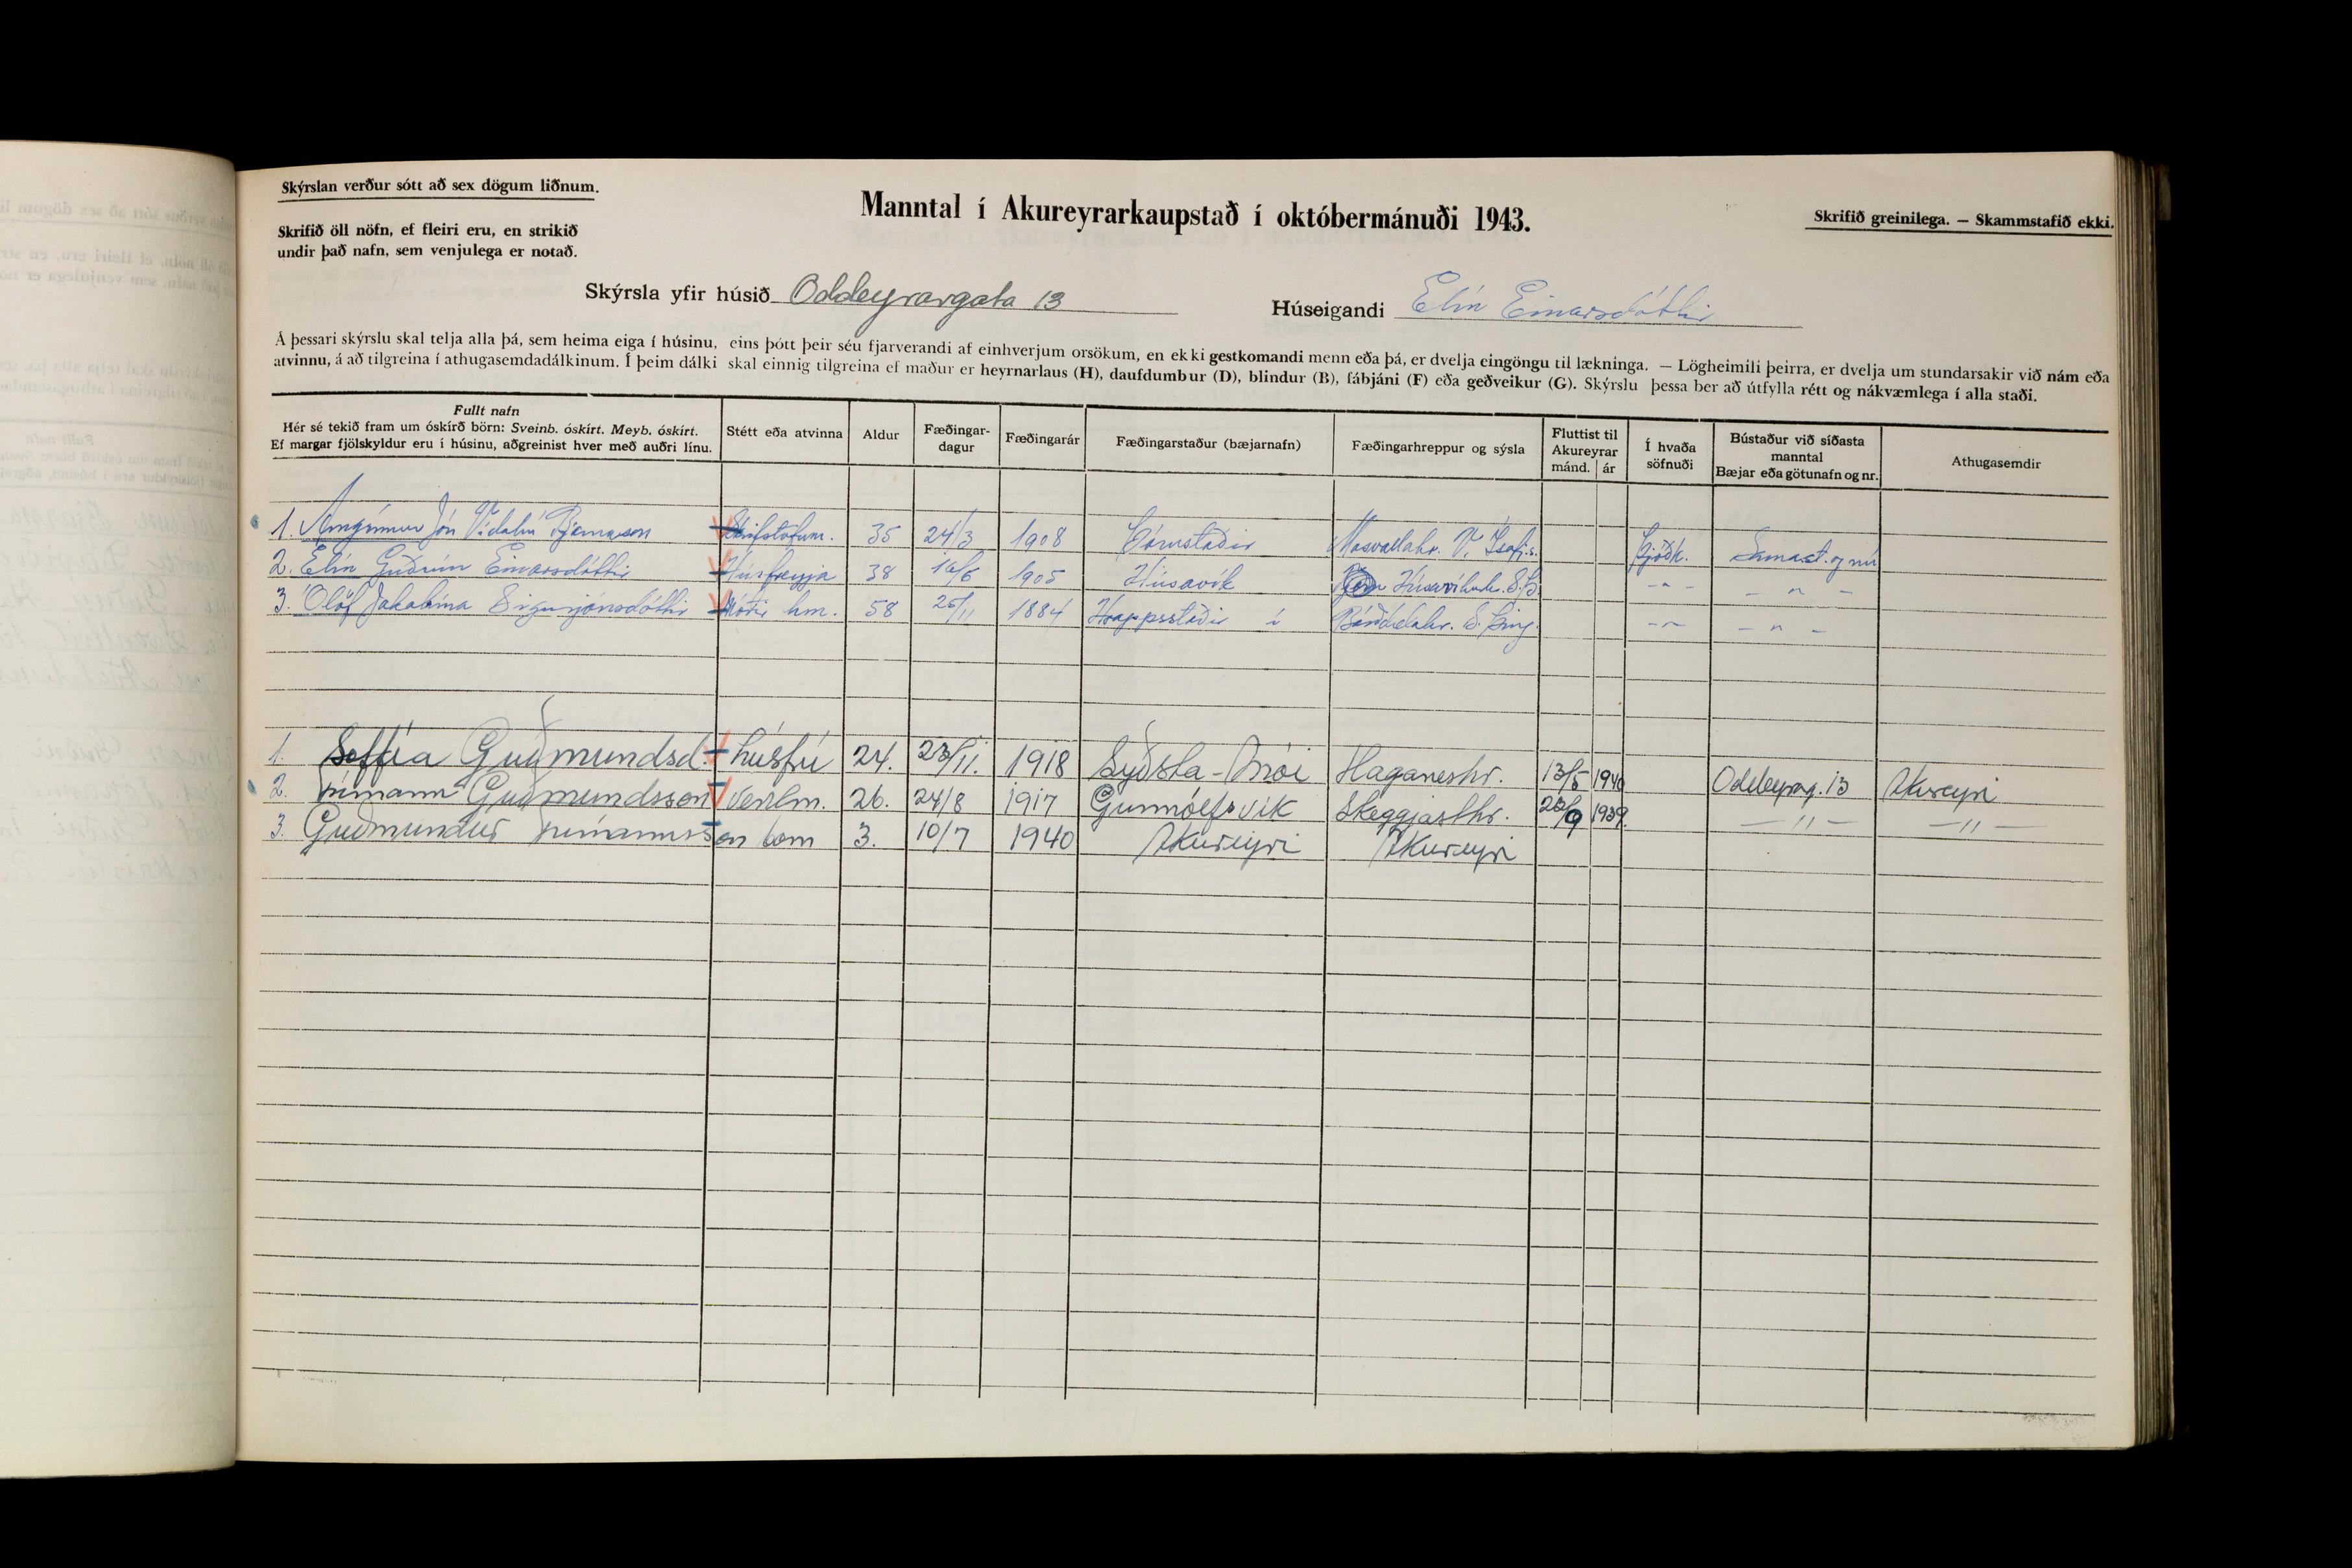 Skýrslan verður sótt að sex dögum liðnum.
Manntal í Akureyrarkaupstað í októbermánuði 1943.
Skrifið greinilega. — Skammstafið ekki.
Skrifið öll nöfn, ef fleiri eru, en strikið
undir það nafn, sem venjulega er notað.
Skýrsla yfir húsið Oddeyrargata 13 Húseigandi Elín Einarsdóttir
Á þessari skýrslu skal telja alla þá, sem heima eiga í húsinu, eins þótt þeir séu fjarverandi af einhverjum orsökum, en ekki gestkomandi menn eða þá, er dvelja eingöngu til lækninga. — Lögheimili þeirra, er dvelja um stundarsakir við nám eða
atvinnu, á að tilgreina í athugasemdadálkinum. Í þeim dálki skal einnig tilgreina ef maður er heyrnarlaus (H), daufdumbur (D), blindur (B), fábjáni (F) eða geðveikur (G). Skýrslu þessa ber að útfylla rétt og nákvæmlega í alla staði.
Fullt nafn
Hér sé tekið fram um óskírð börn: Sveinb. óskírt. Meyb. óskírt.
Ef margar fjölskyldur eru í húsinu, aðgreinist hver með auðri línu.
Stétt eða atvinna
Aldur
Fæðingar-
dagur
Fæðingarár
Fæðingarstaður (bæjarnafn)
Fæðingarhreppur og sýsla
Fluttist til
Akureyrar
mánd. ár
Í hvaða
söfnuði
Bústaður við síðasta
manntal
Bæjar eða götunafn og nr.
Athugasemdir
1. Arngrímur Jón Vídalín Bjarnason Skrifstofum. 35 24/3 1908 Mosvallahr. V. Ísafj.s. Þjóðk.
2. Elín Guðrún Einarsdóttir Húsfreyja 38 16/6 1905 Húsavík Húsavíkurhr. S.Þ. - " - - " -
3. Ólöf Jakobína Sigurjónsdóttir Móðir hm. 58 25/11 1884 Hrappsstaðir í Bárðdælahr. S. Þing. - " - - " -
1. Soffía Guðmundsd. húsfrú 24. 23/11. 1918 Syðsta-Mói Haganeshr. 13/5 1940 Oddeyrarg. 13 Akureyri
2. Trímann Guðmundsson Verkm. 26. 24/8 1917 Gunnólfsvík Skeggjasthr. 1939. — " — — " —
3. Guðmundur Trímannsson barn 3. 10/7 1940 Akureyri Akureyri